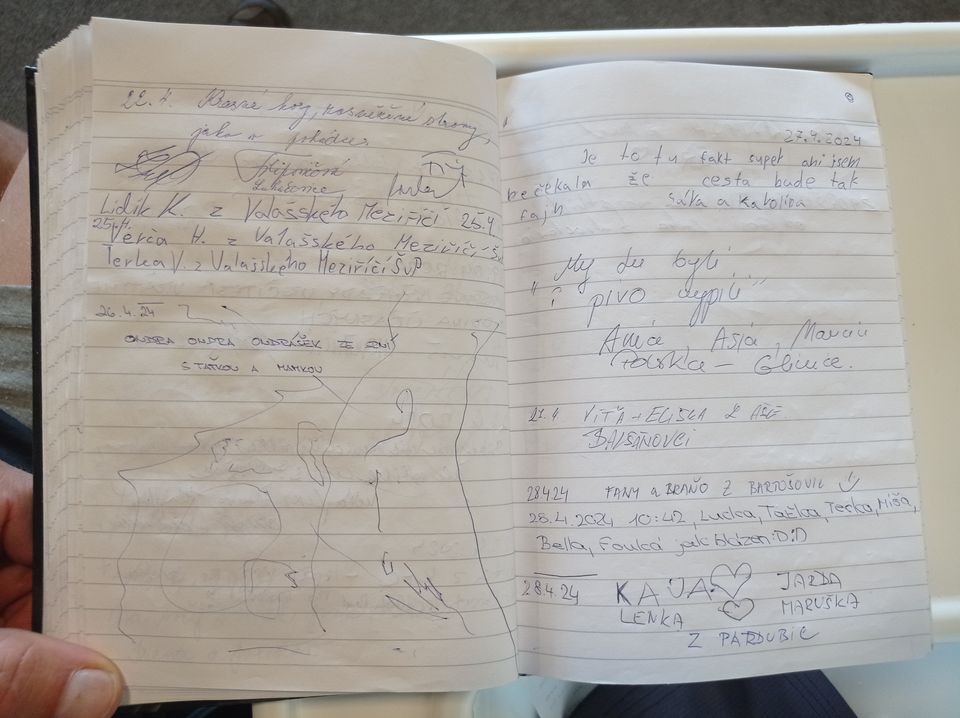 22.4. Krásné hory, rozkvetlé stromy,
jako v pohádce.
Lidik K. z Valašského Meziříčí 25.4
25.4.
Verča H. z Valašského Meziříčí, Švp
Terka V. z Valašského Meziříčí ŠvP
26.4.24
ONDRA ONDRA ONDRÁŠEK ZE
S TAŤKOU A MAMKOU
27.4.2024
Je to tu fakt super ani jsem
nečekala že cesta bude tak
fajn Sára a Karolína
"My tu byli,
i pivo wypili"
Ania, Asia, Marcin
Polska – Gliwice.
27.4 VÍŤA + ELIŠKA Z AŠE
28.4.24 FANY a BRAŇO Z BARTOŠOVIC
28.4.2024 10:42, Lucka, Taťka, Terka, Míša,
Bella, Fouká jak blázen :D :D
28.4.24 KAJA
JARDA
LENKA
MARUŠKA
Z PARDUBIC